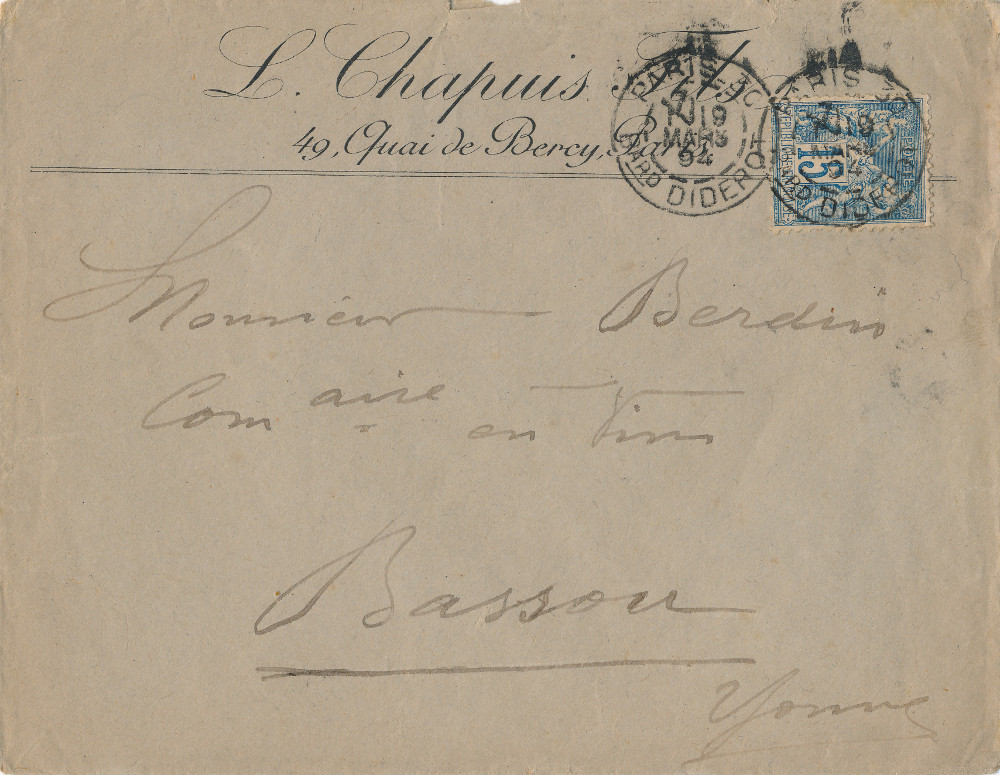 L. Chapuis
49, Quai de Bercy, Paris
PARIS
19
MARS
94
BARD DIDEROT
PARIS
19
DIDEROT
15
POSTES
Monsieur Berdin
Com aire en Vins
Bassou
Yonne